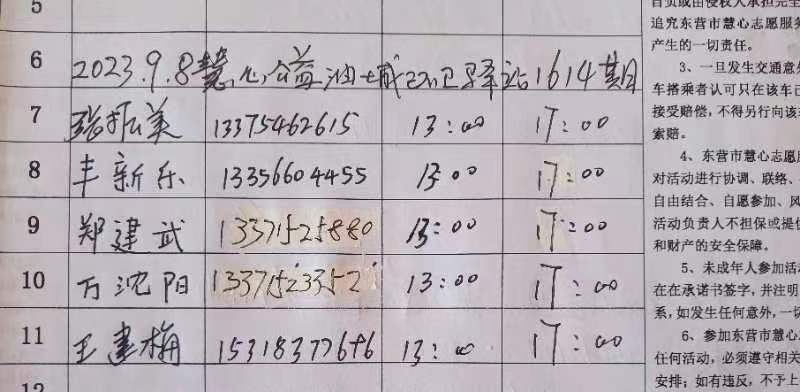 5
6 2023.9.8慧心公益油城环卫驿站1614期
7 张振美 13375462615 13:00 17:00
8 丰新乐 13356604455 13:00 17:00
9 郑建武 13371525880 13:00 17:00
10 万沈阳 13371523352 13:00 17:00
11 王建梅 15318377676 13:00 17:00
12
追究东营市慧心志愿服务
产生的一切责任。
3、一旦发生交通意外
车搭乘者认可只在该车已
接受赔偿，不得另行向该
索赔。
4、东营市慧心志愿服
对活动进行协调、联络、
自由结合、自愿参加、风
活动负责人不担保或提供
和财产的安全保障。
5、未成年人参加活动
在在承诺书签字，并注明
系，如发生任何意外，一切
6、参加东营市慧心
任何活动，必须遵守相关
安排；如有违反，不予上